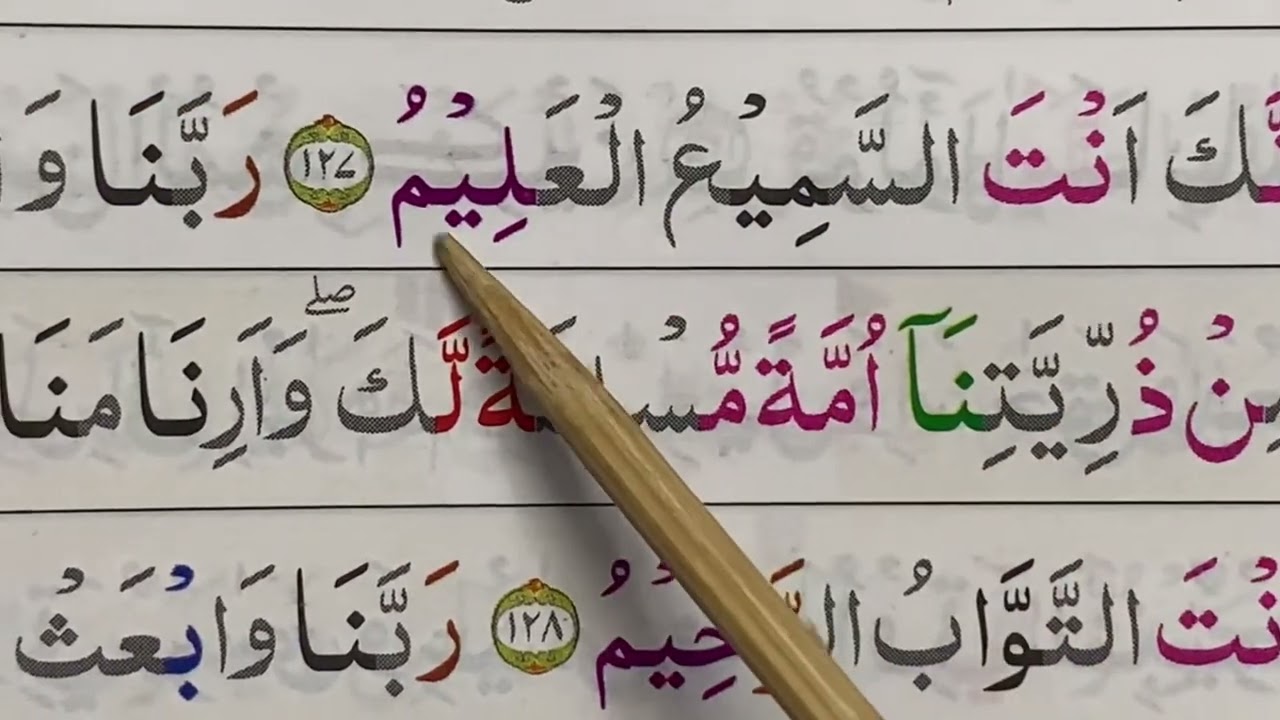 نَّكَ اَنْتَ السَّمِيْعُ الْعَلِيْمُ ١٢٧ رَبَّنَا وَ
مِنْ ذُرِّيَّتِنَآ اُمَّةً مُّسْلِمَةً لَّكَ ۖ وَاَرِنَا مَنَا
نْتَ التَّوَّابُ الرَّحِيْمُ ١٢٨ رَبَّنَا وَابْعَثْ